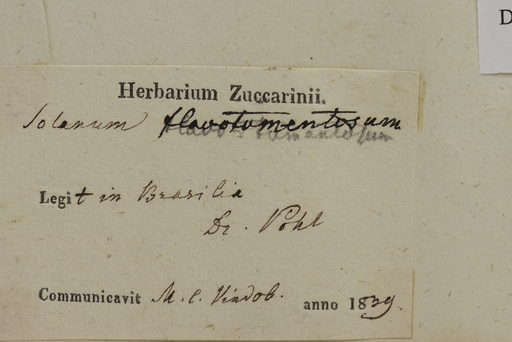 D
Herbarium Zuccarinii.
Solanum flavotomentosum
Legit in Brasilia
Dr. Pohl
Communicavit M. C. Vindob. anno 1839.